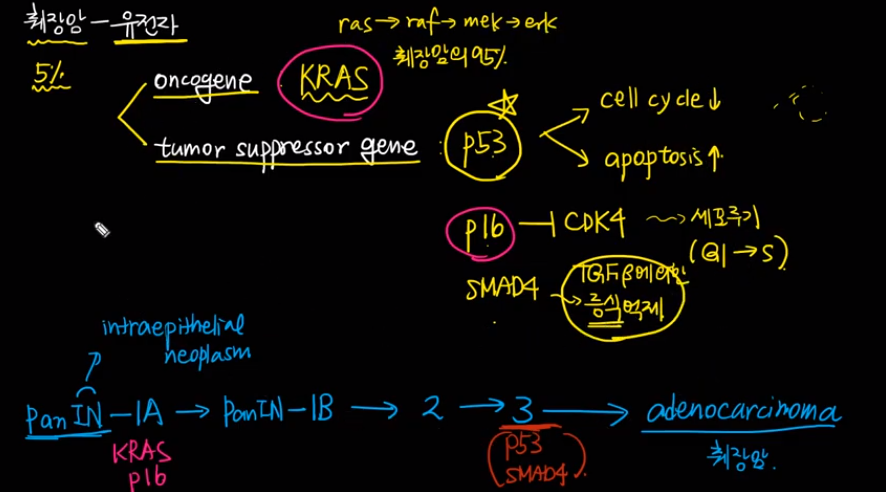 췌장암 – 유전자
ras → raf → mek → erk
5%
oncogene
KRAS
췌장암의 95%
tumor suppressor gene
p53
cell cycle ↓
apoptosis ↑
p16 ⊣ CDK4 → 세포주기
(G1 → S)
SMAD4
TGFβ에 의한
증식 억제
intraepithelial
neoplasm
PanIN – 1A → PanIN – 1B → 2 → 3 → adenocarcinoma
KRAS
p16
p53
SMAD4
췌장암